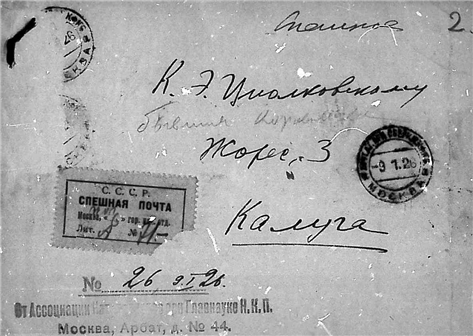 Спешное 2.
МОСКВА
К. Э. Циолковскому
бывшая
Жорес, 3
9 1.26
МОСКВА
С. С. С. Р.
СПЕШНАЯ ПОЧТА
Москва, гор. отд.
Лит. А №
Калуга
№ 26 9.I 26.
От Ассоциации Главнауке Н.К.П.
Москва, Арбат, д. № 44.